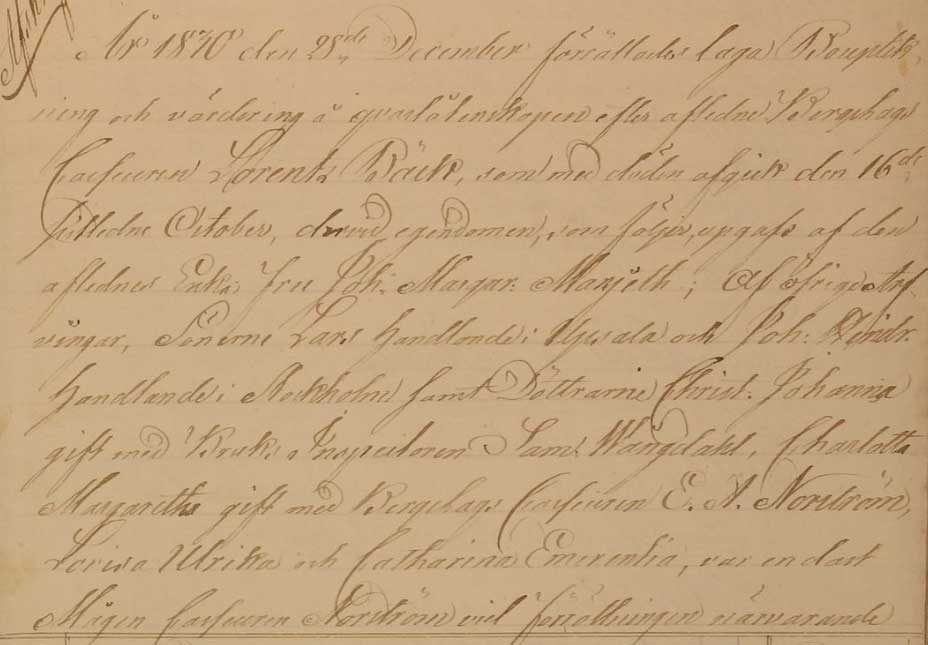 År 1870 den 28de December förrättades laga Bouptek-
ning och värdering å qvarlåtenskapen efter afledne Bergshags
Casseuren Lorentz Bäck, som med döden afgick den 16de
sistledne October, dervid egendomen, som följer, upgafs af den
aflednes Enka Fru Joh: Margar:; Af öfrige Arf
vingar, Sönerne Lars Handlande i Upsala och Joh: Hendr.
Handlande i Stockholm samt Döttrarne Christ: Johanna
gift med Bruks Inspectoren Sam: Wångdahl, Charlotta
Margaretha gift med Bergshags Casseuren E. A. Norström,
Lovisa Ulrika och Catharina Emerentia, var endast
Mågen Casseuren Norström vid förrättningen närvarande